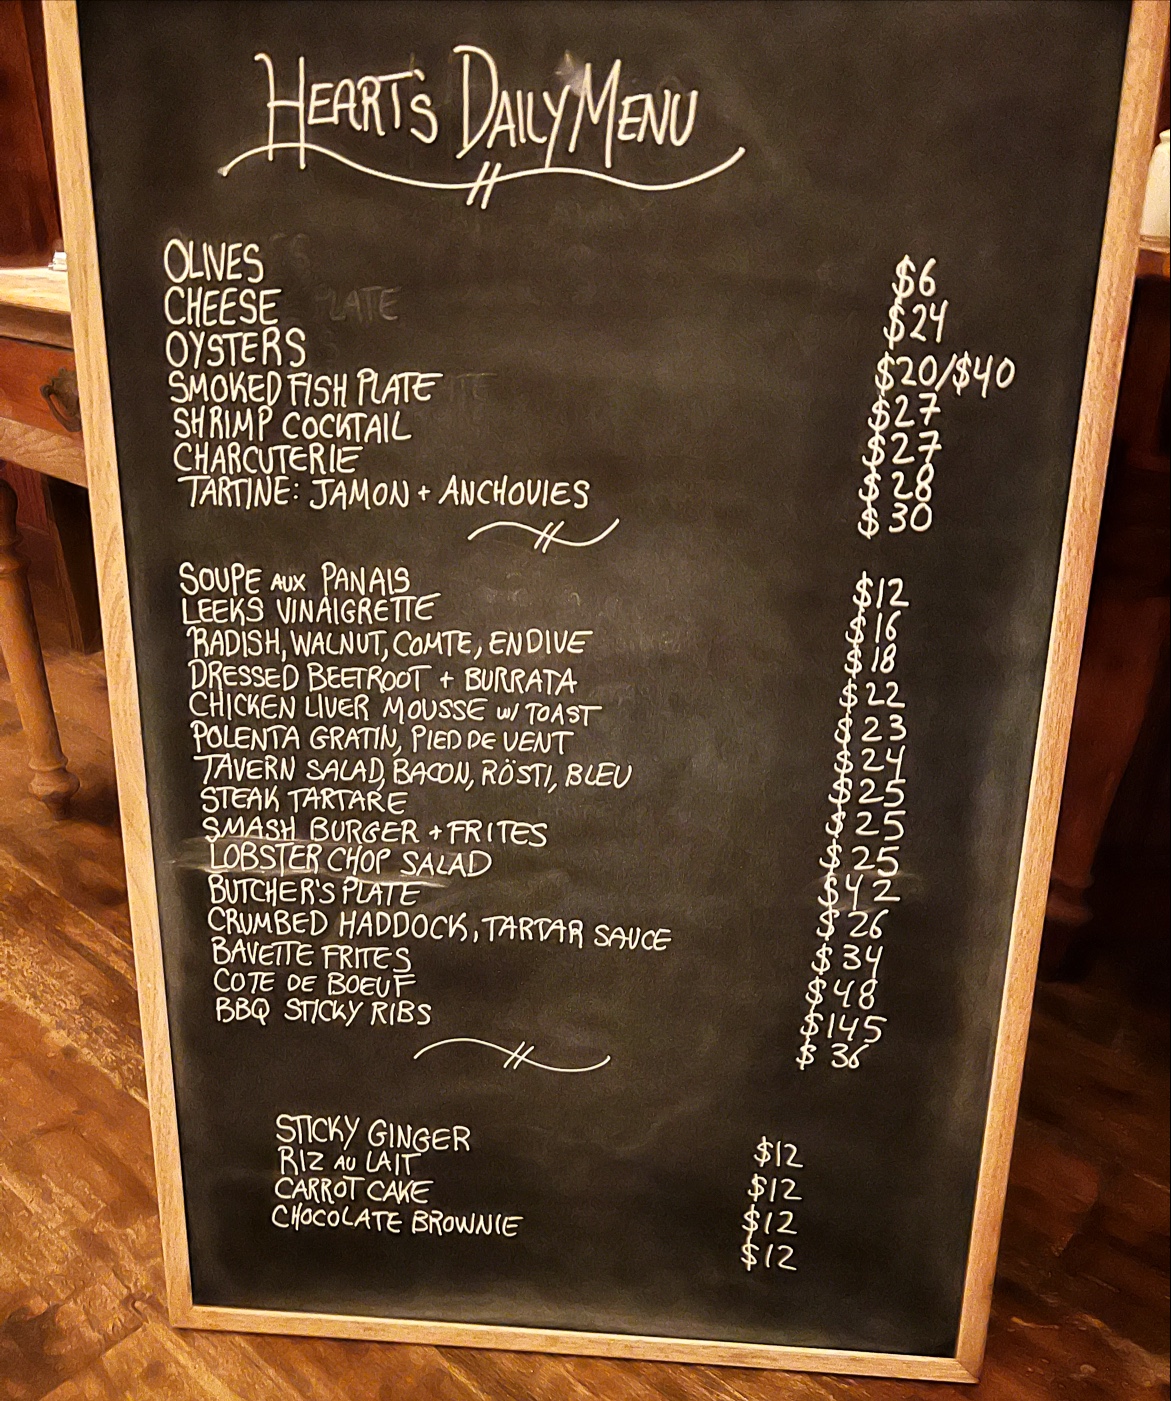 HEART'S DAILY MENU
OLIVES $6
CHEESE $24
OYSTERS $20/$40
SMOKED FISH PLATE $27
SHRIMP COCKTAIL $27
CHARCUTERIE $28
TARTINE: JAMON + ANCHOVIES $30
SOUPE AUX PANAIS $12
LEEKS VINAIGRETTE $16
RADISH, WALNUT, COMTE, ENDIVE $18
DRESSED BEETROOT + BURRATA $22
CHICKEN LIVER MOUSSE W/ TOAST $23
POLENTA GRATIN, PIED DE VENT $24
TAVERN SALAD, BACON, RÖSTI, BLEU $25
STEAK TARTARE $25
SMASH BURGER + FRITES $25
LOBSTER CHOP SALAD $42
BUTCHER'S PLATE $26
CRUMBED HADDOCK, TARTAR SAUCE $34
BAVETTE FRITES $48
COTE DE BOEUF $145
BBQ STICKY RIBS $36
STICKY GINGER $12
RIZ AU LAIT $12
CARROT CAKE $12
CHOCOLATE BROWNIE $12